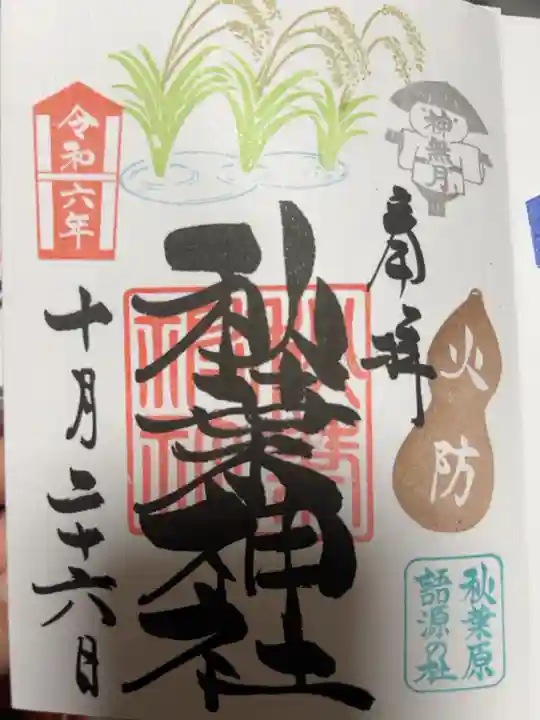 神無月
奉拝
火防
秋葉原
語源の社
秋葉神社
秋葉
神社
令和六年
十月二十六日